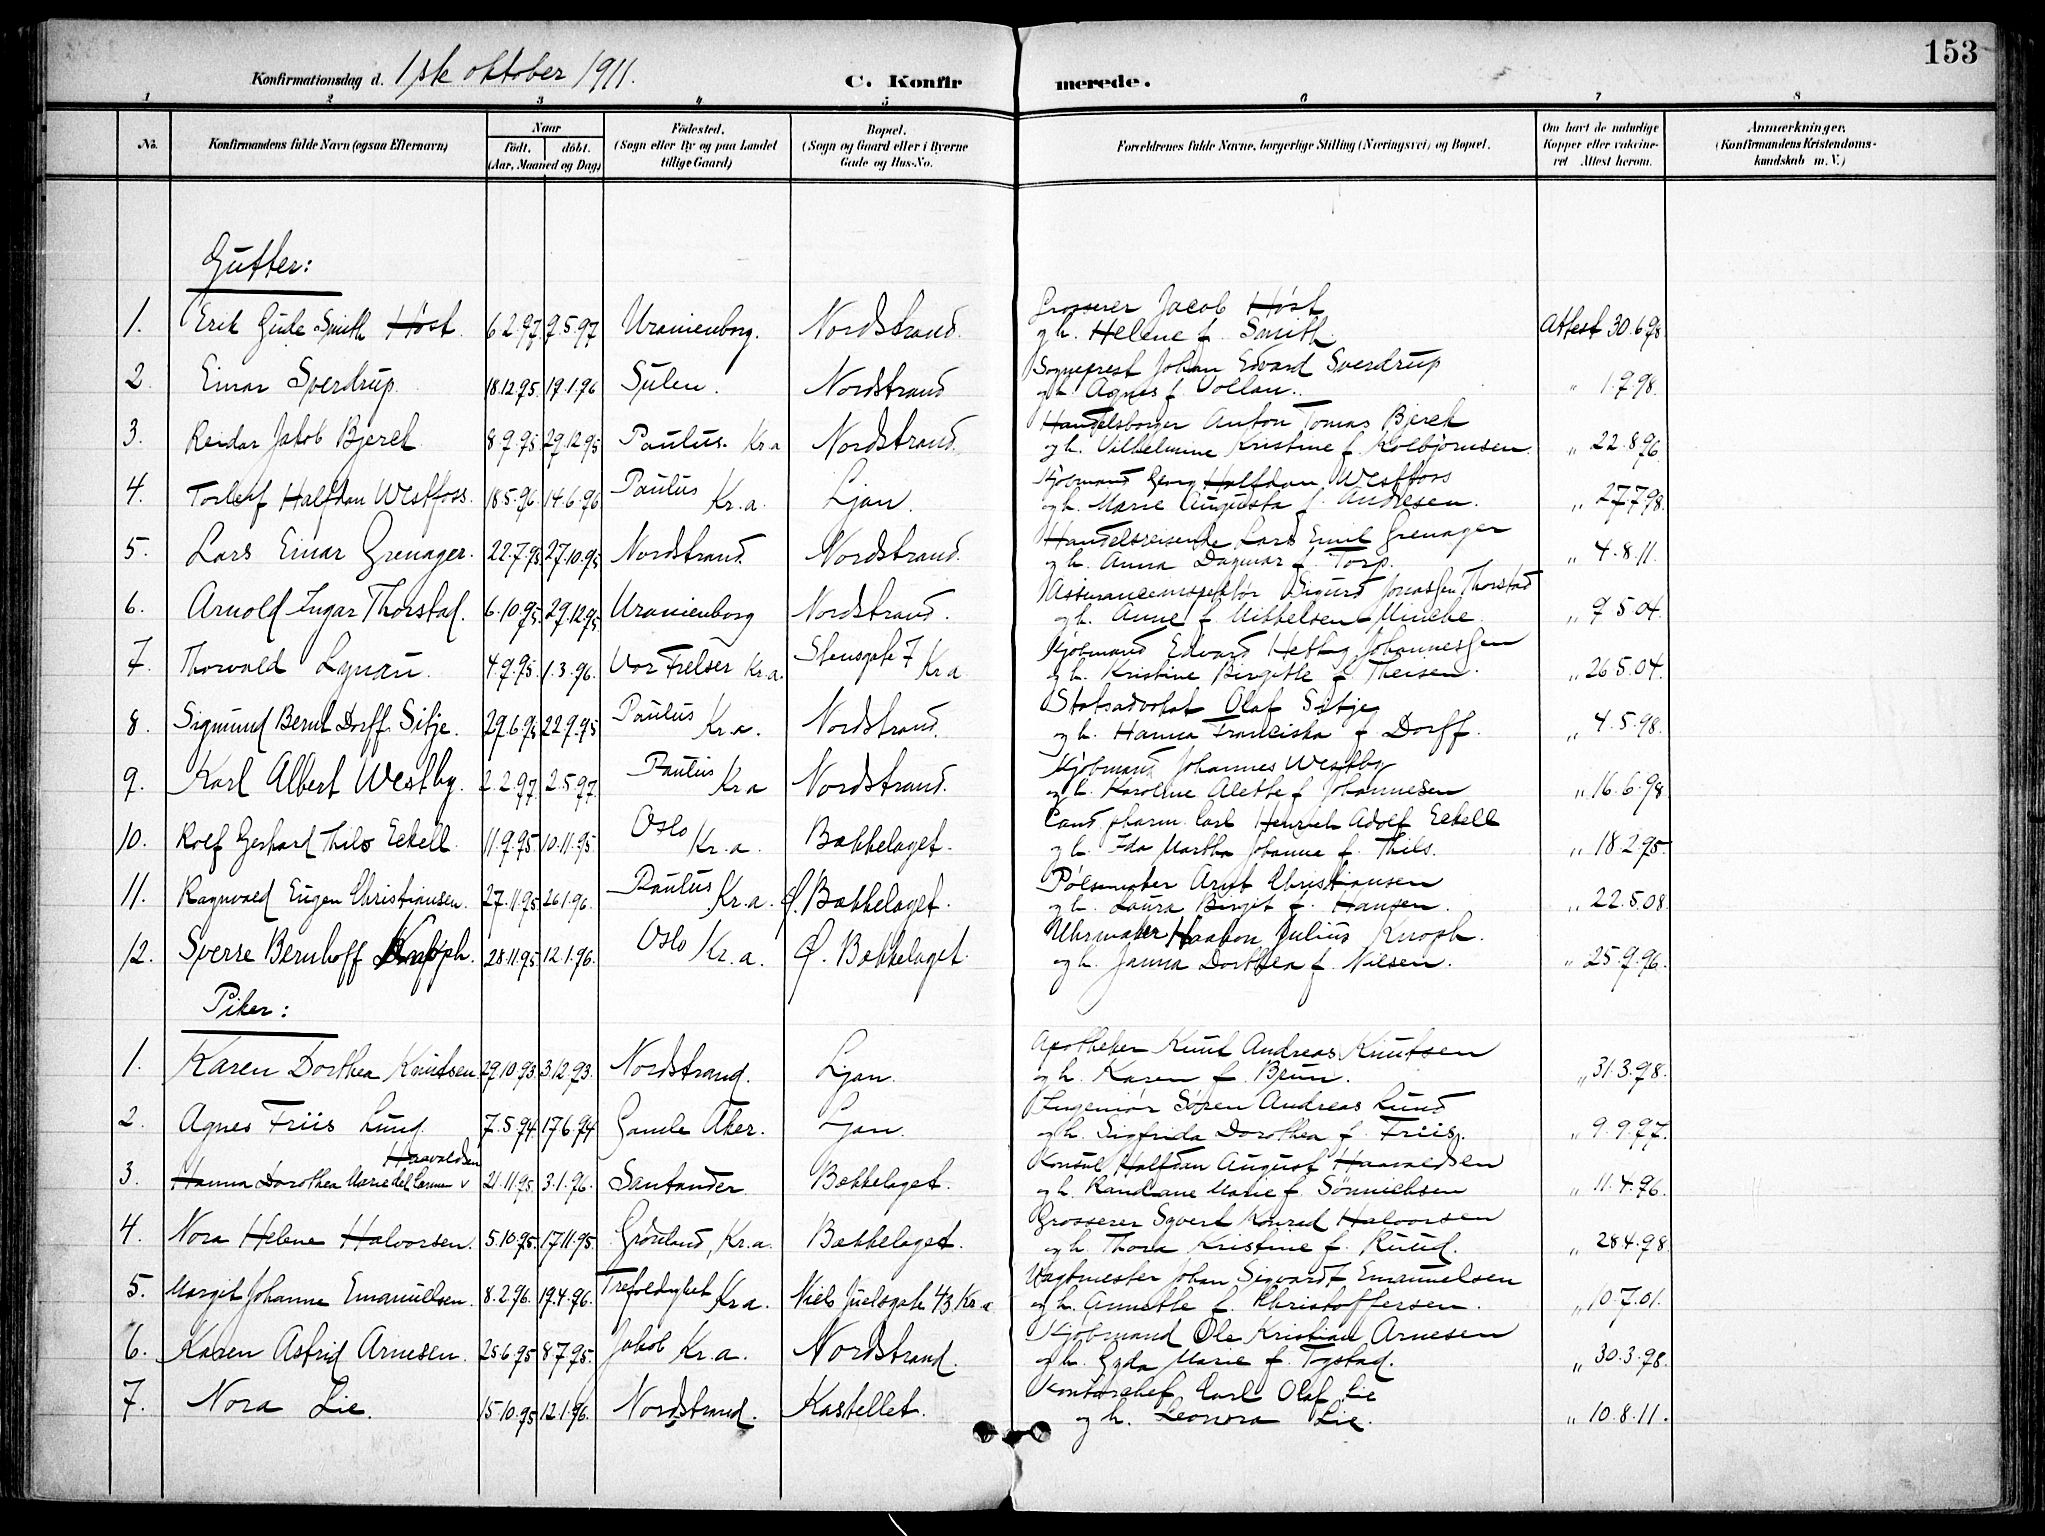 153
Konfirmationsdag d. 1ste oktober 1911. C. Konfirmerede.
1 2 3 4 5 6 7 8
No. Konfirmandens fulde Navn (ogsaa Efternavn) Naar født. døbt. (Aar, Maaned og Dag) Fødested. (Sogn eller By og paa Landet tillige Gaard) Bopæl. (Sogn og Gaard eller i Byerne Gade og Hus-No. Forældrenes fulde Navne, borgerlige Stilling (Næringsvei) og Bopæl. Om havt de naturlige Kopper eller vakcineret Attest herom. Anmærkninger. (Konfirmandens Kristendomskundskab m. V.)
Gutter:
1. Erik Gude Smith Høst 6.2.97 9.5.97 Uranienborg. Nordstrand. Grosserer Jacob Høst
og h. Helene f. Smith Attest 30.6.98
2. Einar Sverdrup 18.12.95 19.1.96 Sulen. Nordstrand Sogneprest Johan Edvard Sverdrup
og h. Agnes f. Vollan. " 1.9.98.
3. Reidar Jakob Bjerck 8.9.95 29.12.95 Paulus. Kr.a Nordstrand. Handelsborger Anton Tomas Bjerck
og h. Vilhelmine Kristine f. Kolbjørnsen. " 22.8.96
4. Torleif Halfdan Westfoss. 18.5.96 14.6.96 Paulus Kr.a. Ljan. Kjøbmand Georg Halfdan Westfoss
og h. Marie Augusta f. Andresen. " 27.7.98.
5. Lars Einar Grenager. 22.7.95 27.10.95 Nordstrand. Nordstrand. Handelsreisende Lars Emil Grenager
og h. Anna Dagmar f. Torp. " 4.8.11.
6. Arnold Ingar Thorstad. 6.10.95 29.12.95 Uranienborg Nordstrand. Assuranceinspektør Sigurd Jonassen Thorstad
og h. Anne f. Mikkelsen Minche " 9.5.04.
7. Thorvald Lynau. 4.9.95. 1.3.96. Vor Frelser Kr.a. Stensgate 7 Kr.a Kjøbmand Edvard Hefting Johannessen
og h. Kristine Birgitte f. Theisen. " 26.5.04.
8. Sigmund Bernt Dorff Sitje. 29.6.95 22.9.95 Paulus Kr.a. Nordstrand. Statsadvokat Olaf Sitje
og h. Hanna Franciska f. Dorff. " 4.5.98.
9. Karl Albert Westby. 2.2.97. 2.5.97. Paulus Kr.a Nordstrand. Kjøbmand Johannes Westby
og h. Karoline Alette f. Johannesen " 16.6.98
10. Rolf Gerhard Thilo Eckell. 11.9.95. 10.11.95. Oslo Kr.a. Bækkelaget. Cand. pharm. Carl Henrich Adolf Eckell
og h. Ida Martha Johanna f. Thilo. " 18.2.95.
11. Ragnvald Eugen Christiansen. 27.11.95 26.1.96. Paulus Kr.a. Ø. Bækkelaget. Pølsemaker Arnt Christiansen
og h. Laura Birgit f. Hansen. " 22.5.08.
12. Sverre Bernhoff Knoph. 28.11.95 12.1.96. Oslo Kr.a. Ø. Bækkelaget. Uhrmaker Haakon Julius Knoph.
og h. Janna Dorthea f. Nilsen. " 25.9.96.
Piker:
1. Karen Dorthea Knutsen 29.10.93. 3.12.93. Nordstrand. Ljan. Apotheker Knut Andreas Knutsen
og h. Karen f. Brun. " 31.3.98.
2. Agnes Friis Lund 7.5.94 17.6.94 Gamle Aker. Ljan. Ingeniør Søren Andreas Lund
og h. Sigfrida Dorothea f. Friis. " 9.9.97.
Haavaldsen
3. Hanna Dorothea Marie del Carmen v 21.11.95 3.1.96. Santander Bækkelaget. Konsul Halfdan August Haavaldsen
og h. Randiane Marie f. Sønnichsen " 11.4.96.
4. Nora Helene Halvorsen. 5.10.95. 17.11.95. Grønland, Kr.a. Bækkelaget. Grosserer Syvert Konrad Halvorsen
og h. Thora Kristine f. Ruud. " 28.4.98.
5. Margit Johanne Emanuelsen. 8.2.96. 19.4.96. Trefoldighet Kr.a. Niels Juelsgate 43 Kr.a Vagtmester Johan Sigvardt Emanuelsen
og h. Annethe f. Christoffersen. " 10.7.01.
6. Karen Astrid Arnesen. 25.6.95 8.7.95. Jakob Kr.a. Nordstrand. Kjøbmand Ole Kristian Arnesen
og h. Gyda Marie f. Togstad. " 30.3.98.
7. Nora Lie. 15.10.95 12.1.96. Nordstrand. Kastellet. Kontorchef Carl Olaf Lie
og h. Leonora Lie. " 10.8.11.